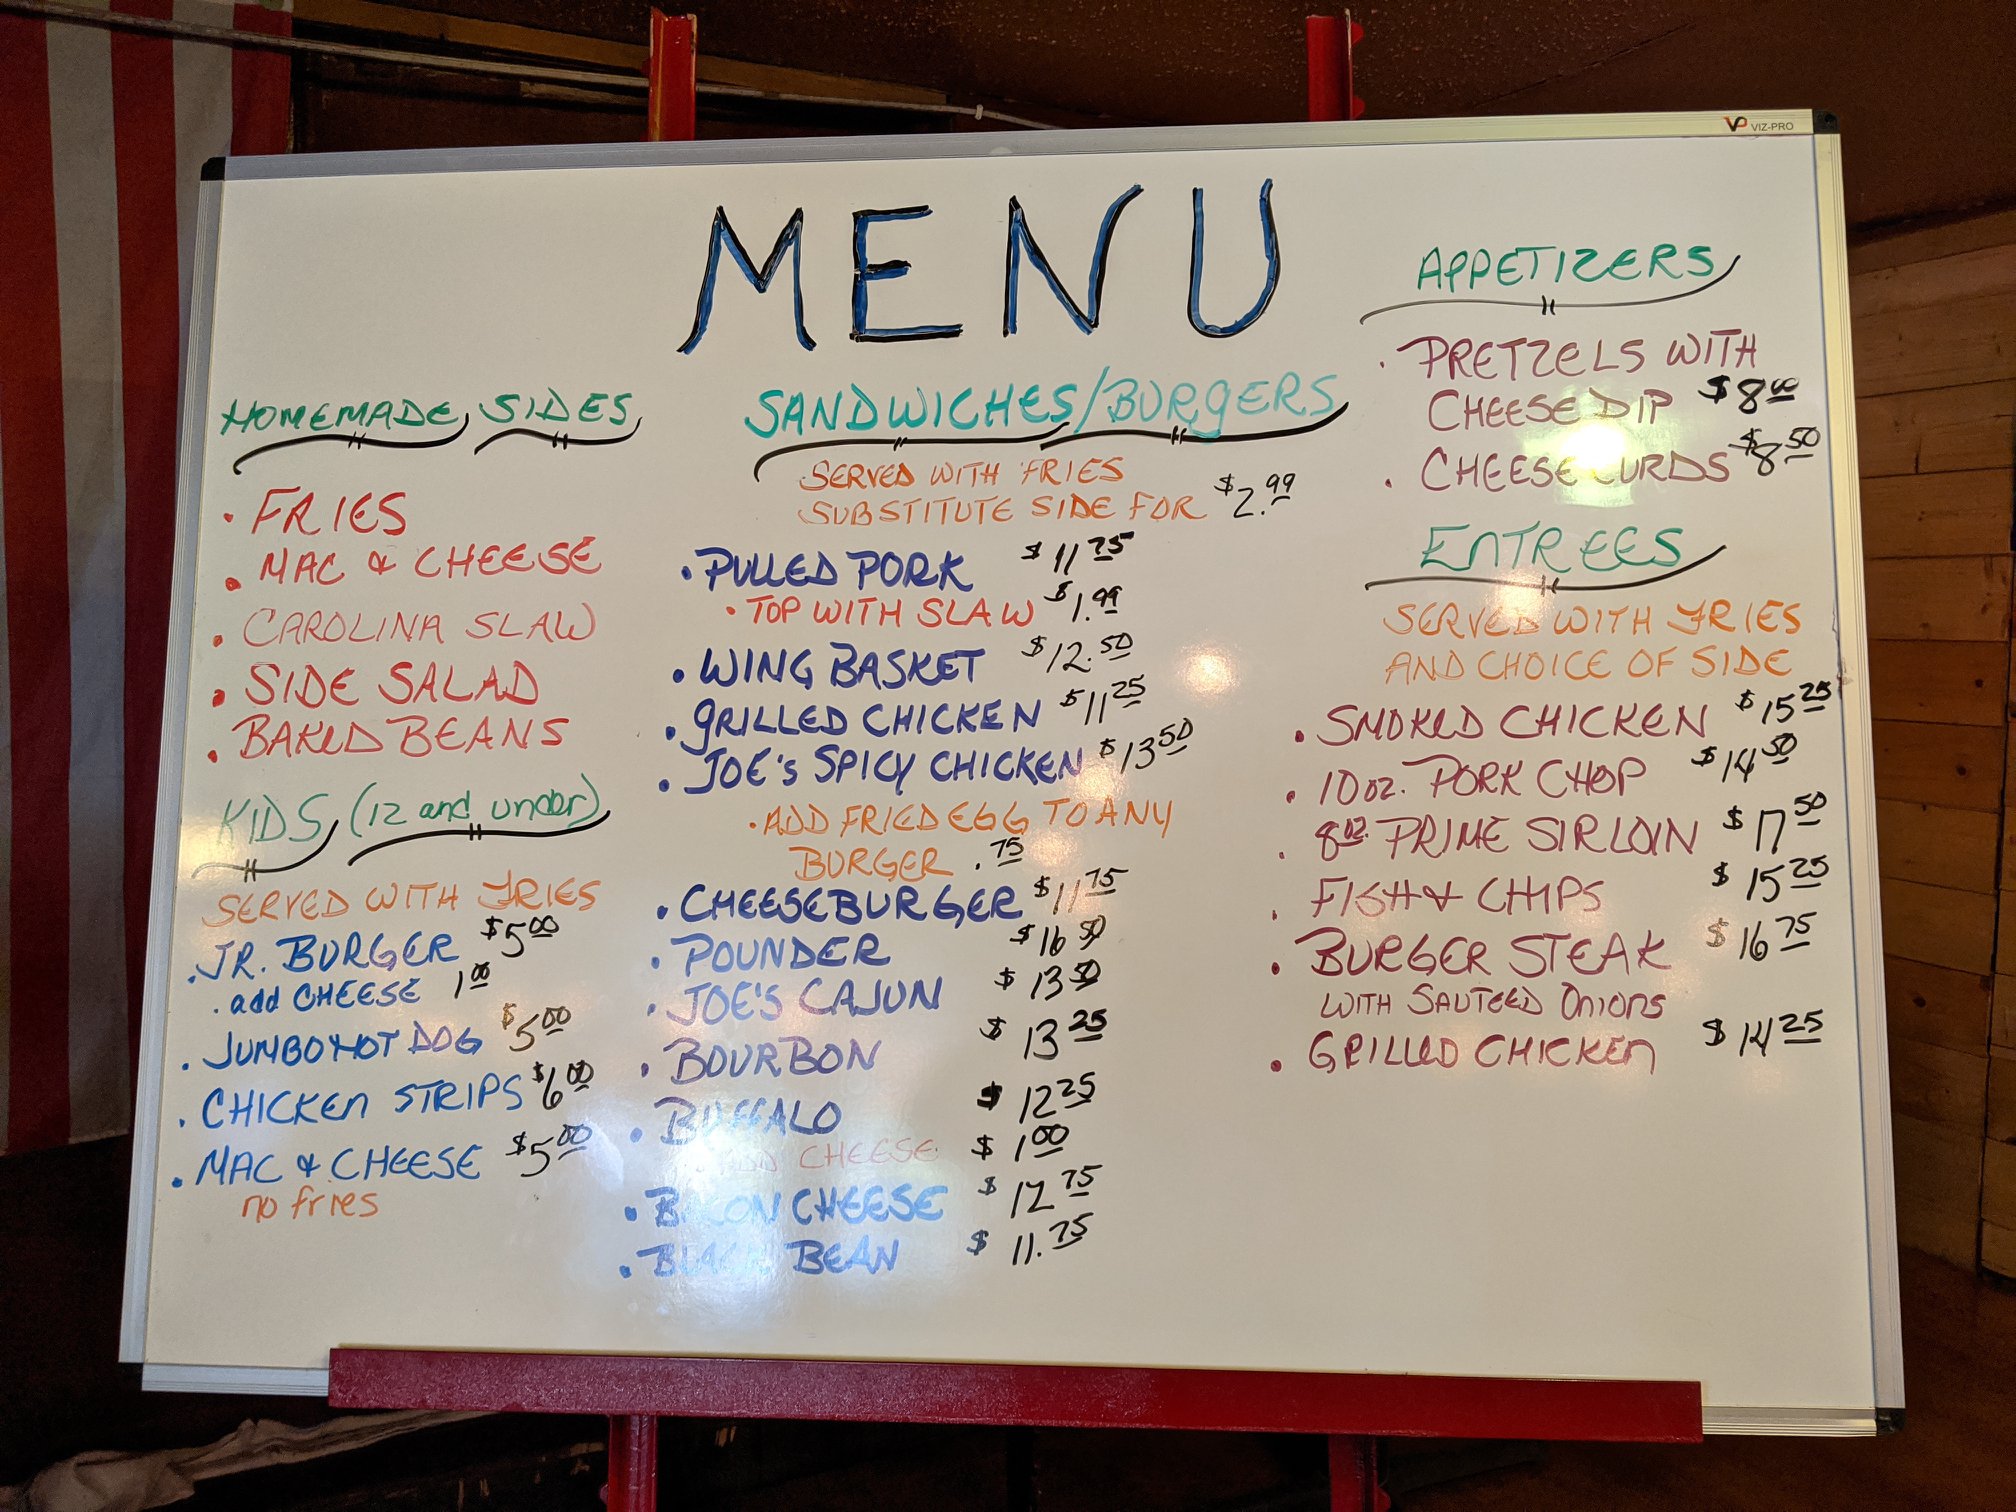 VIZ-PRO
MENU
HOMEMADE SIDES
• FRIES
• MAC & CHEESE
• CAROLINA SLAW
• SIDE SALAD
• BAKED BEANS
KIDS (12 and under)
SERVED WITH FRIES
• JR. BURGER $5.00
• add CHEESE 1.00
• JUMBO HOT DOG $5.00
• CHICKEN STRIPS $6.00
• MAC & CHEESE $5.00
no fries
SANDWICHES/BURGERS
SERVED WITH FRIES
SUBSTITUTE SIDE FOR $2.99
• PULLED PORK $11.75
• TOP WITH SLAW $1.99
• WING BASKET $12.50
• GRILLED CHICKEN $11.25
• JOE'S SPICY CHICKEN $13.50
• ADD FRIED EGG TO ANY
BURGER .75
• CHEESEBURGER $11.75
• POUNDER $16.50
• JOE'S CAJUN $13.50
• BOURBON $13.25
• BUFFALO $12.25
• ADD CHEESE $1.00
• BACON CHEESE $12.75
• BLACK BEAN $11.75
APPETIZERS
• PRETZELS WITH
CHEESE DIP $8.00
• CHEESE CURDS $8.50
ENTREES
SERVED WITH FRIES
AND CHOICE OF SIDE
• SMOKED CHICKEN $15.25
• 10 oz. PORK CHOP $14.50
• 8 oz. PRIME SIRLOIN $17.50
• FISH & CHIPS $15.25
• BURGER STEAK $16.75
WITH SAUTEED ONIONS
• GRILLED CHICKEN $14.25